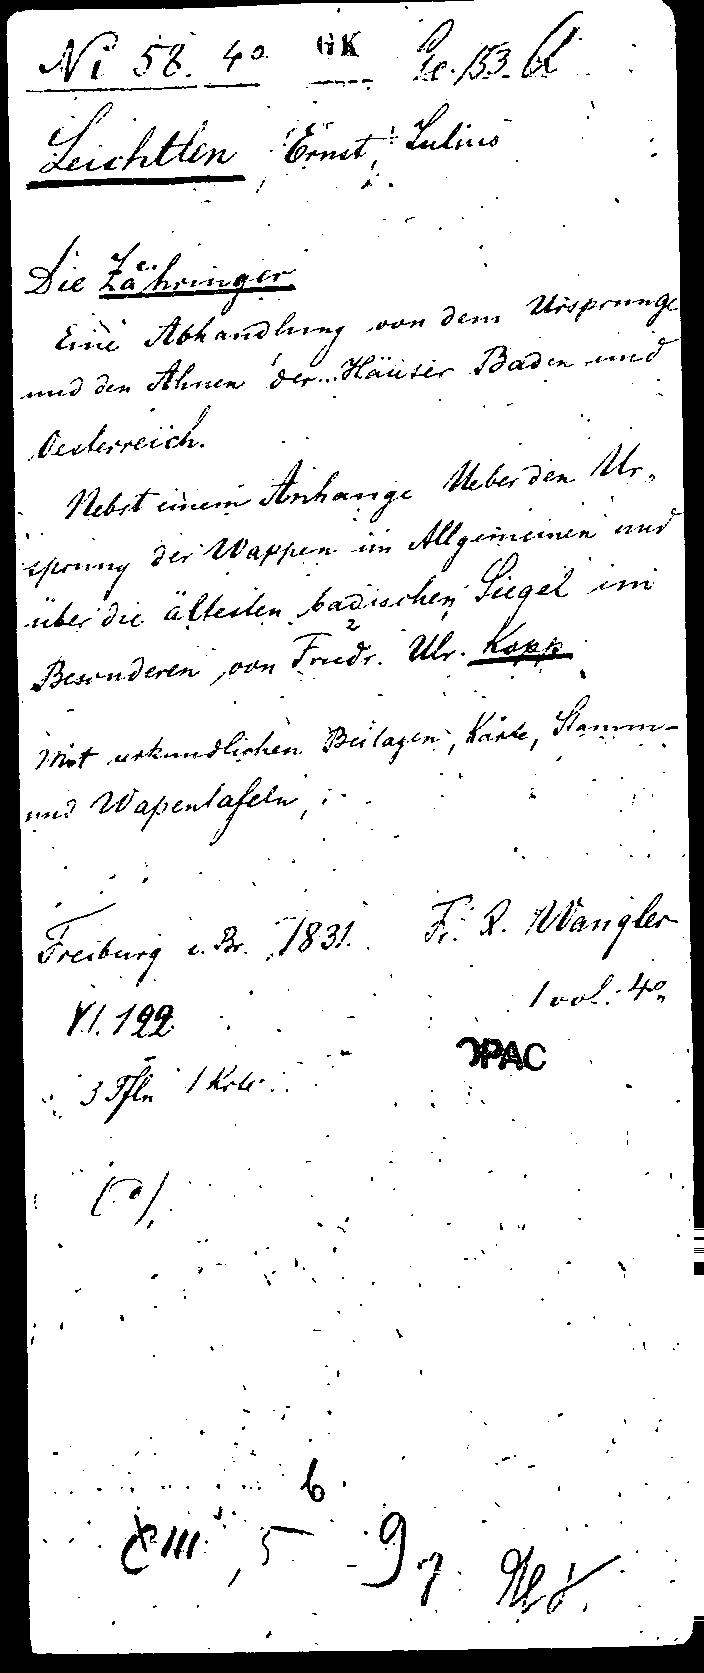 Ni 58. 4° GK Ge. 153. a
Leichtlen, Ernst, Julius
Die Zähringer.
Eine Abhandlung von dem Ursprunge
und den Ahnen der Häuser Baden und
Oesterreich.
Nebst einem Anhange Ueber den Ur-
sprung der Wappen im Allgemeinen und
über die ältesten badischen Siegel im
Besonderen von Friedr. Ulr. Kopp.
Mit urkundlichen Beilagen, Karte, Stamm-
und Wapentafeln,
Freiburg i. Br. 1831. Fr. X. Wangler
VI. 122. 1 vol. 4°
3 Tfln 1 Krte. OPAC
(a)
6
XIII, 5 9